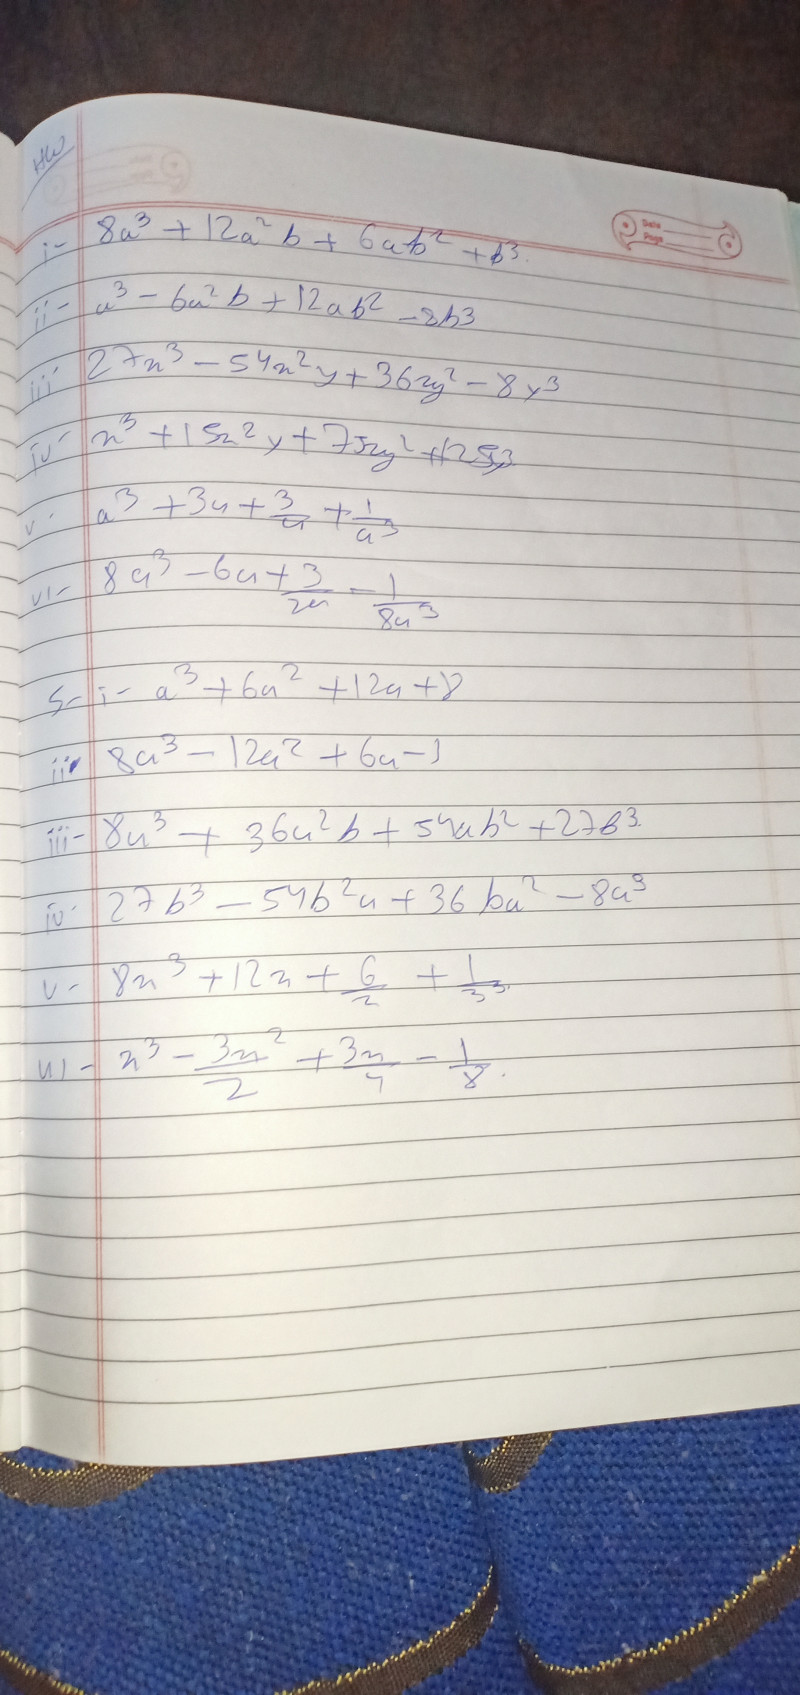 HW
Date
Page
i- 8a³ + 12a²b + 6ab² + b³.
ii- a³ - 6a²b + 12ab² - 8b³
iii- 27x³ - 54x²y + 36xy² - 8y³
iv- x³ + 15x²y + 75xy² + 125y³
v- a³ + 3a + 3/a + 1/a³
vi- 8a³ - 6a + 3/2a - 1/8a³
5- i- a³ + 6a² + 12a + 8
ii- 8a³ - 12a² + 6a - 1
iii- 8a³ + 36a²b + 54ab² + 27b³.
iv- 27b³ - 54b²a + 36ba² - 8a³
v- 8x³ + 12x + 6/x + 1/x³.
vi- x³ - 3x²/2 + 3x/4 - 1/8.